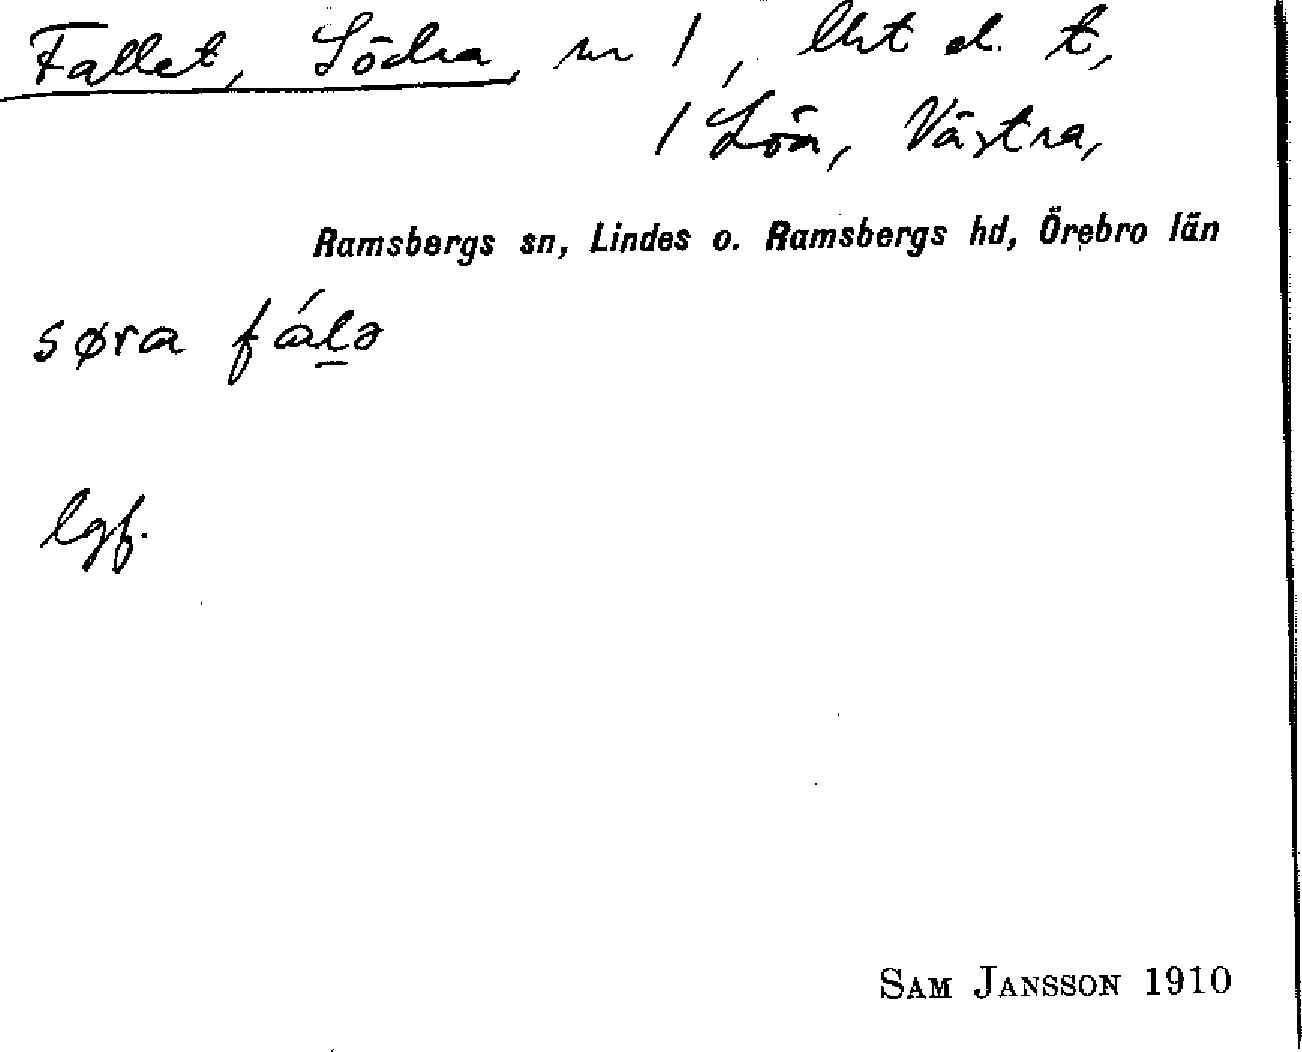 Fallet, Södra, nr 1, lht d. t,
1 Löa, Västra,
Ramsbergs sn, Lindes o. Ramsbergs hd, Örebro län
søra fálə
lgf.
SAM JANSSON 1910